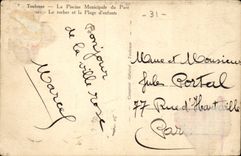 Toulouse - La Piscine Municipale du Parc
Le rocher et la Plage d'enfants
- 31 -
Bonjour
de la ville rose
Marcel
Mme et Monsieur
Jules Portal
77 Rue d'Hautville
Paris